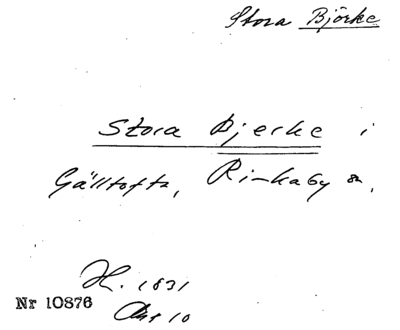 Stora Björke
Stora Bjerke i
Gälltofta, Rinkaby sn,
H. 1831
Nr 10876
Akt 10